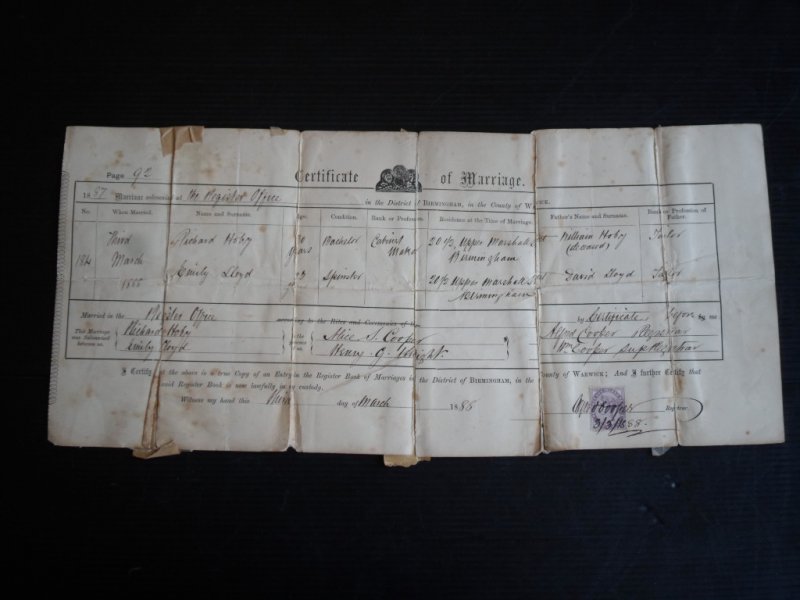 Page 92
Certificate of Marriage.
18 87 Marriage solemnized at The Register Office in the District of BIRMINGHAM, in the County of WARWICK.
No. When Married. Name and Surname. Age. Condition. Rank or Profession. Residence at the Time of Marriage. Father's Name and Surname. Rank or Profession of Father.
184 Third March 1888
Richard Hoby 30 years Bachelor Cabinet Maker 20½ Upper Marshall Street Birmingham William Hoby (deceased) Tailor
Emily Lloyd 23 Spinster 20½ Upper Marshall Street Birmingham David Lloyd Tailor
Married in the Register Office according to the Rites and Ceremonies of the by Certificate before me
This Marriage was Solemnized between us, Richard Hoby Emily Lloyd in the presence of us Alice S. Cooper Henry G. Wright Alfred Cooper Registrar Wm Cooper Sup Registrar
I Certify that the above is a true Copy of an Entry in the Register Book of Marriages in the District of BIRMINGHAM, in the County of WARWICK; And I further Certify that
said Register Book is now lawfully in my custody.
Witness my hand this Third day of March 1888
Alfred Cooper Registrar
3/3/1888